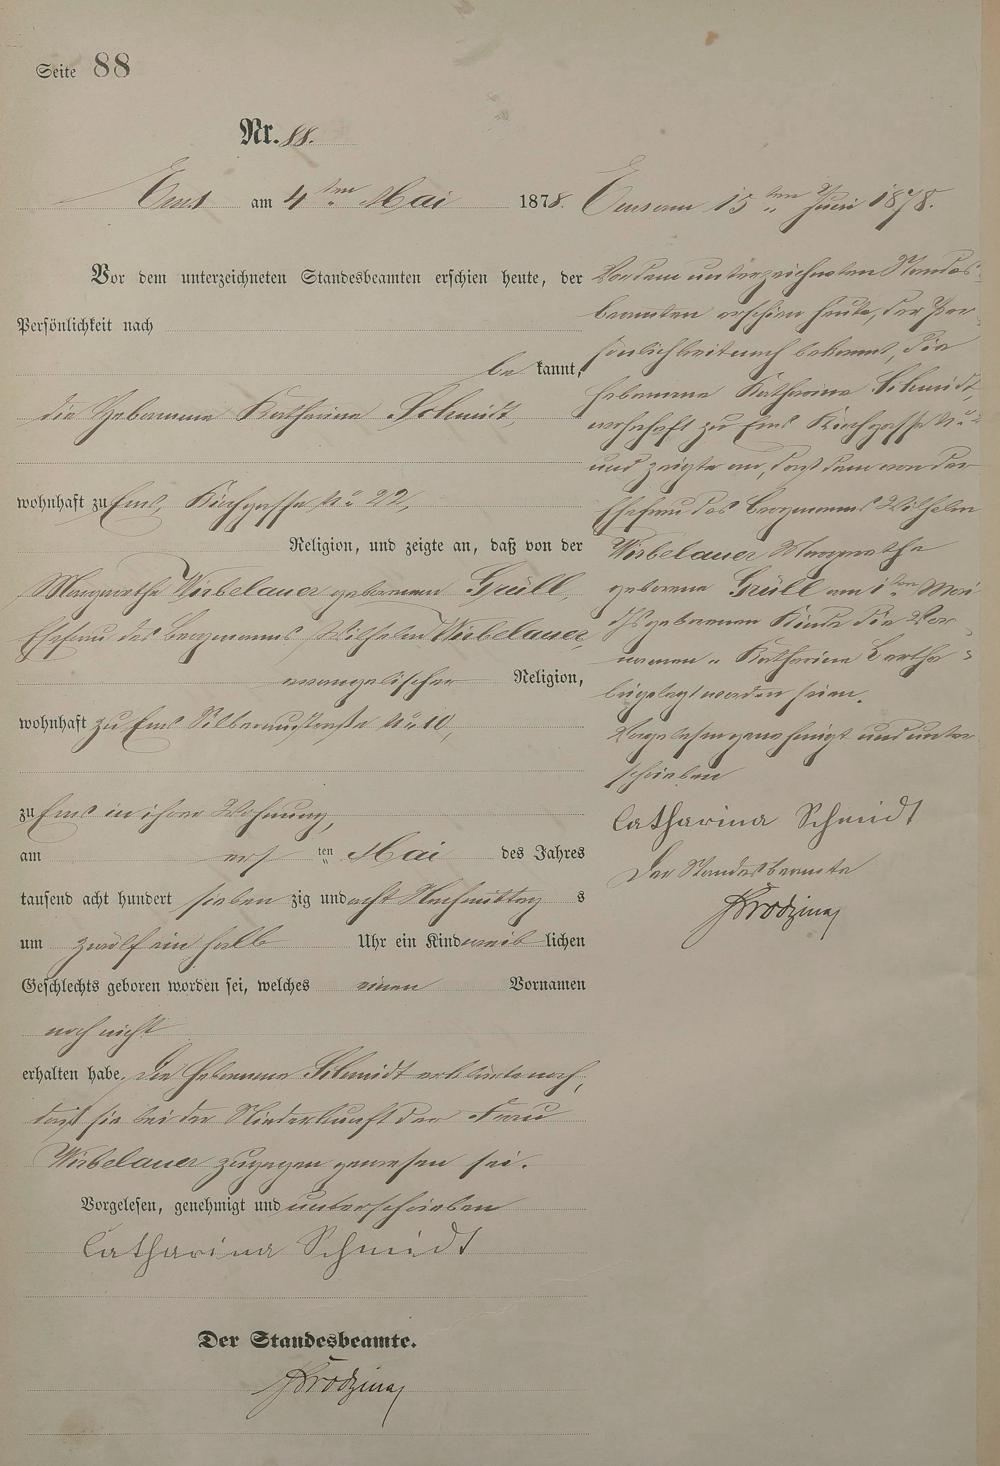 Seite 88
Nr. 88.
Ems am 4ten Mai 1878.
Vor dem unterzeichneten Standesbeamten erschien heute, der
Persönlichkeit nach
be kannt,
die Hebamme Katharina Schmidt,
wohnhaft zu Ems, Kirchgasse No 22,
Religion, und zeigte an, daß von der
Margarethe Wirbelauer geborenen Grüll,
Ehefrau des Bergmanns Wilhelm Wirbelauer,
evangelischer Religion,
wohnhaft zu Ems Silberaustraße No 10,
zu Ems in ihrer Wohnung,
am ers ten Mai des Jahres
tausend acht hundert sieben zig und acht Nachmittag s
um zwölf ein halb Uhr ein Kind weib lichen
Geschlechts geboren worden sei, welches einen Vornamen
noch nicht
erhalten habe. Die Hebamme Schmidt erklärte noch,
daß sie bei der Niederkunft der Frau
Wirbelauer zugegen gewesen sei.
Vorgelesen, genehmigt und unterschrieben
Catharina Schmidt
Der Standesbeamte.
Ems am 15ten Juni 1878.
Vor dem unterzeichneten Standes
beamten erschien heute, der Per
sönlichkeit nach bekannt, die
Hebamme Katharina Schmidt,
wohnhaft zu Ems Kirchgasse No
und zeigte an, daß dem von der
Ehefrau des Bergmanns Wilhelm
Wirbelauer Margarethe
geborene Grüll am 1ten Mai
geborenen Kinde die Vor
namen Katharina Bertha
beigelegt worden seien.
Vorgelesen genehmigt und unter
schrieben
Catharina Schmidt
Der Standesbeamte